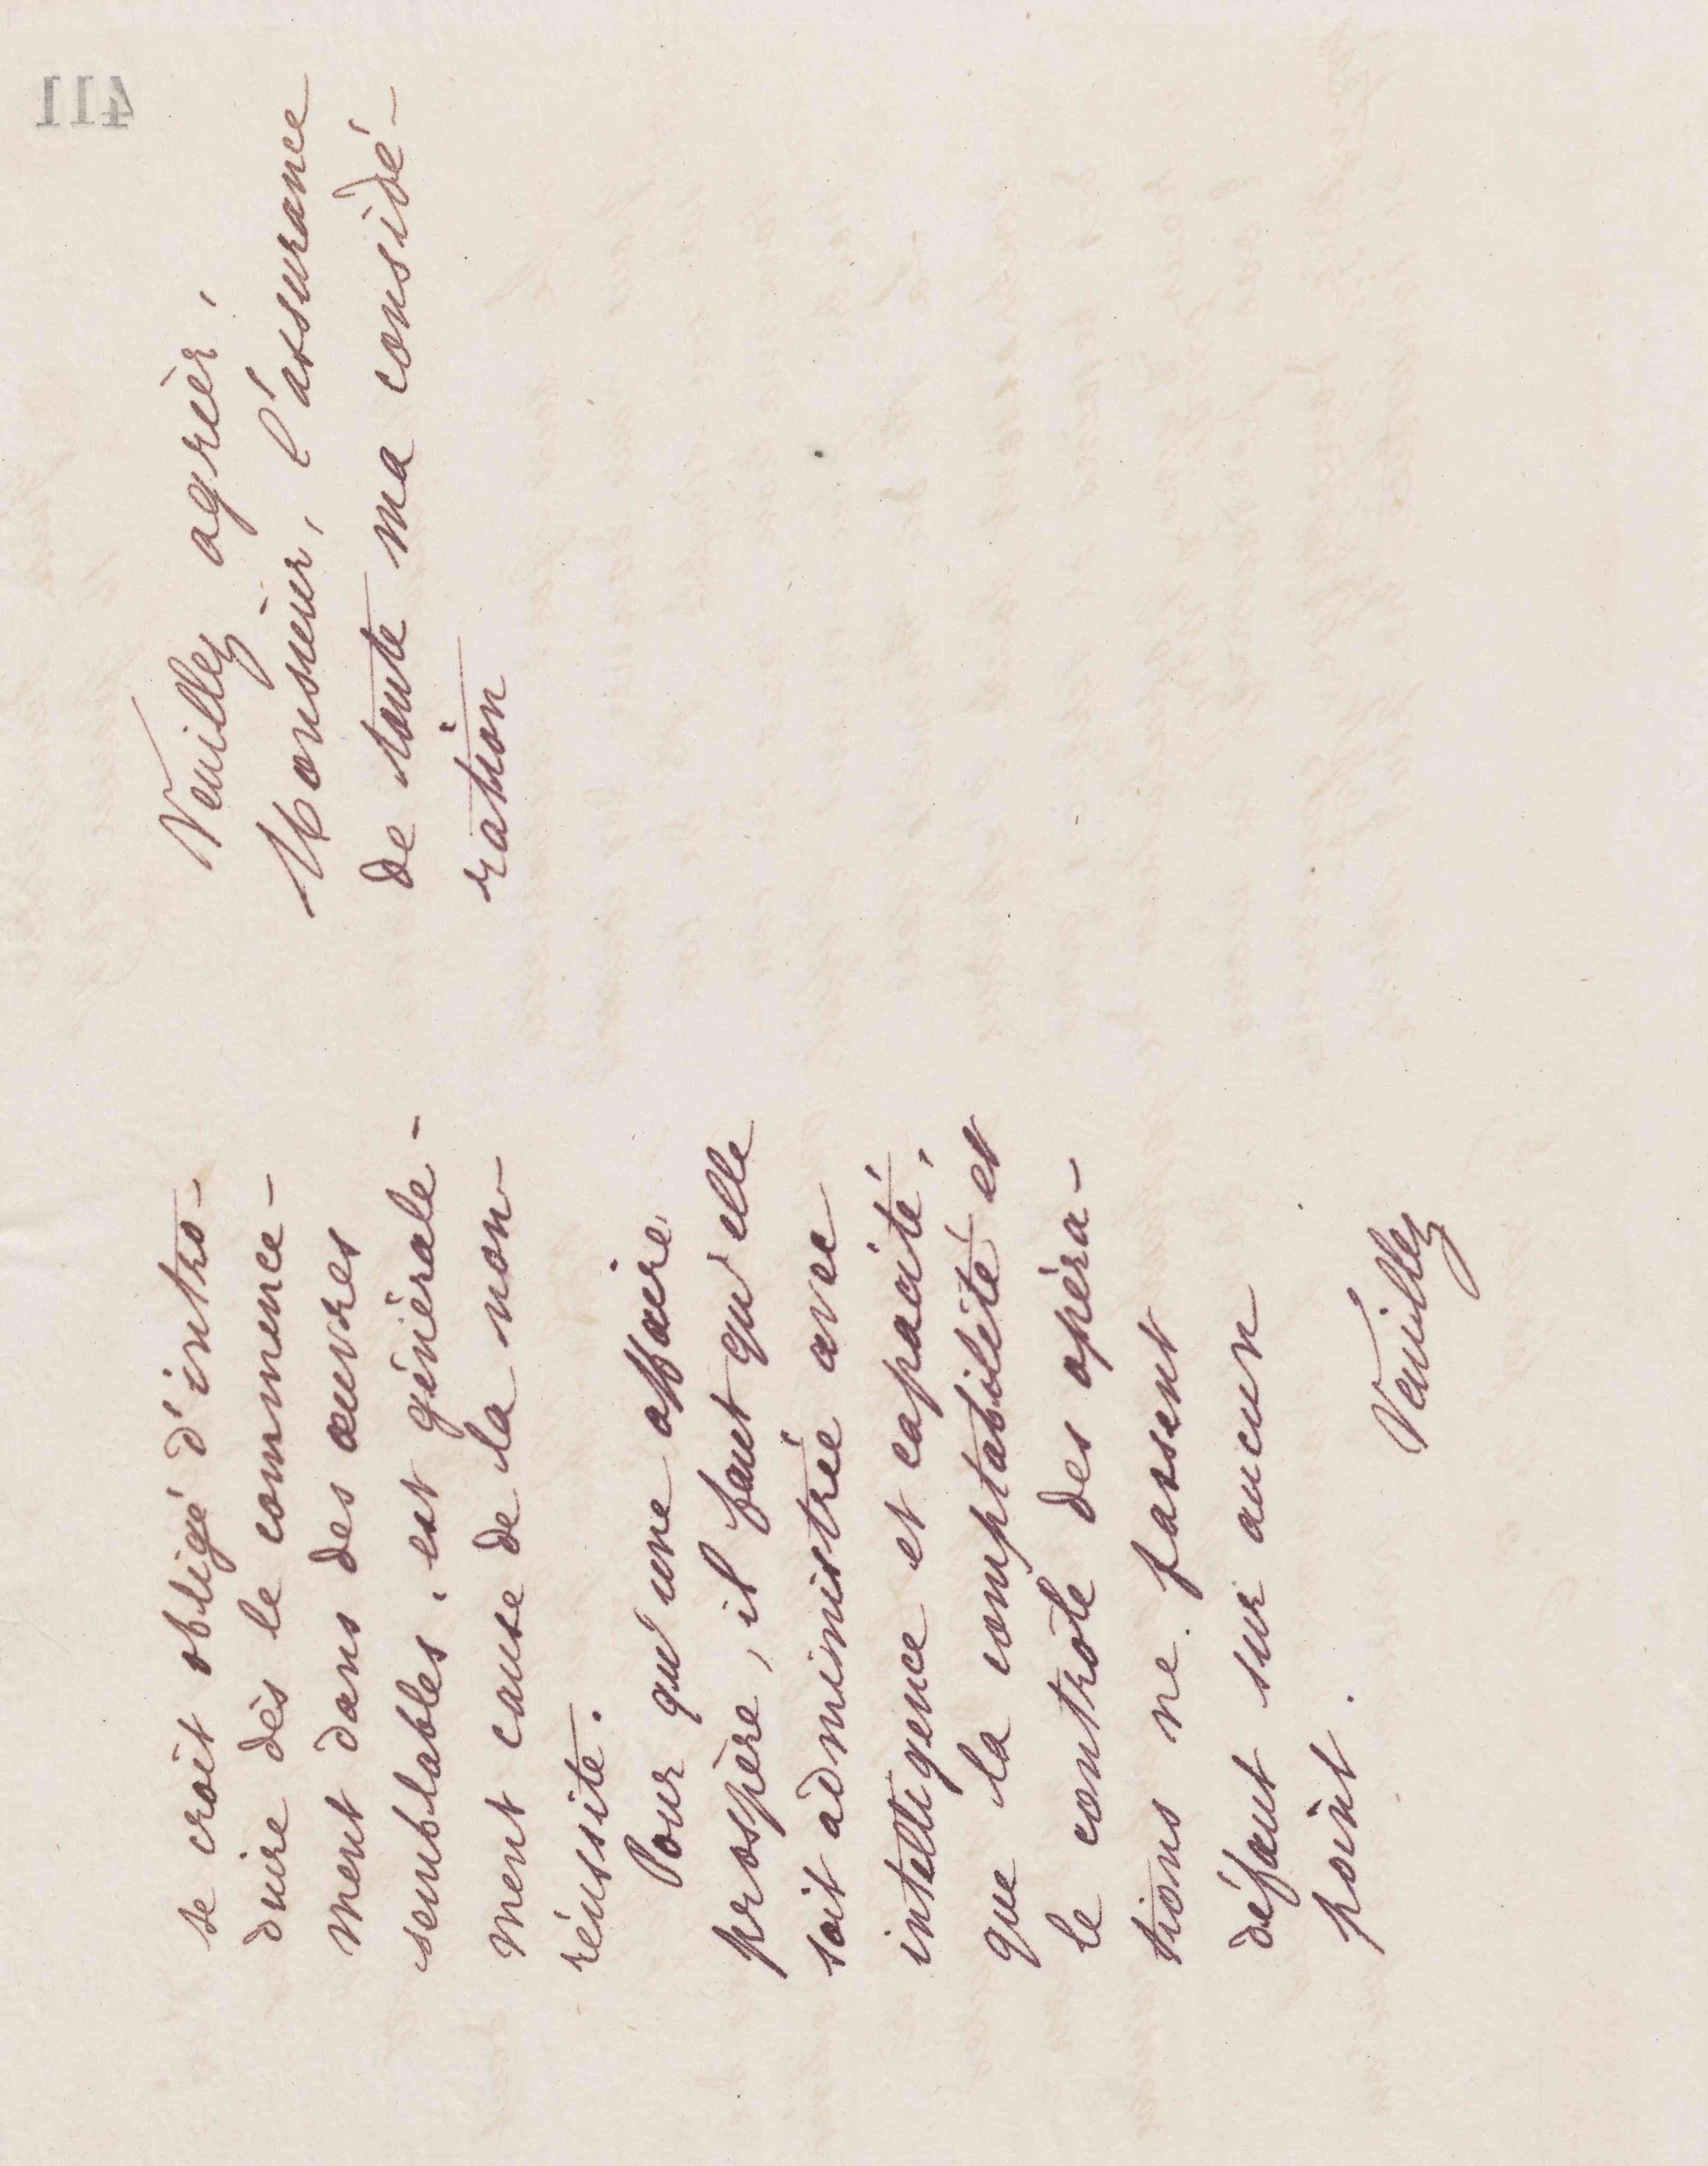 se croit obligé d'intro-
duire dès le commence-
ment dans des œuvres
semblables, est générale-
ment cause de la non-
réussite.
Pour qu'une affaire
prospère, il faut qu'elle
soit administrée avec
intelligence et capacité,
que la comptabilité et
le contrôle des opéra-
tions ne fassent
défaut sur aucun
point.
Veuillez
Veuillez agréer,
Monsieur, l'assurance
de toute ma considé-
ration
411